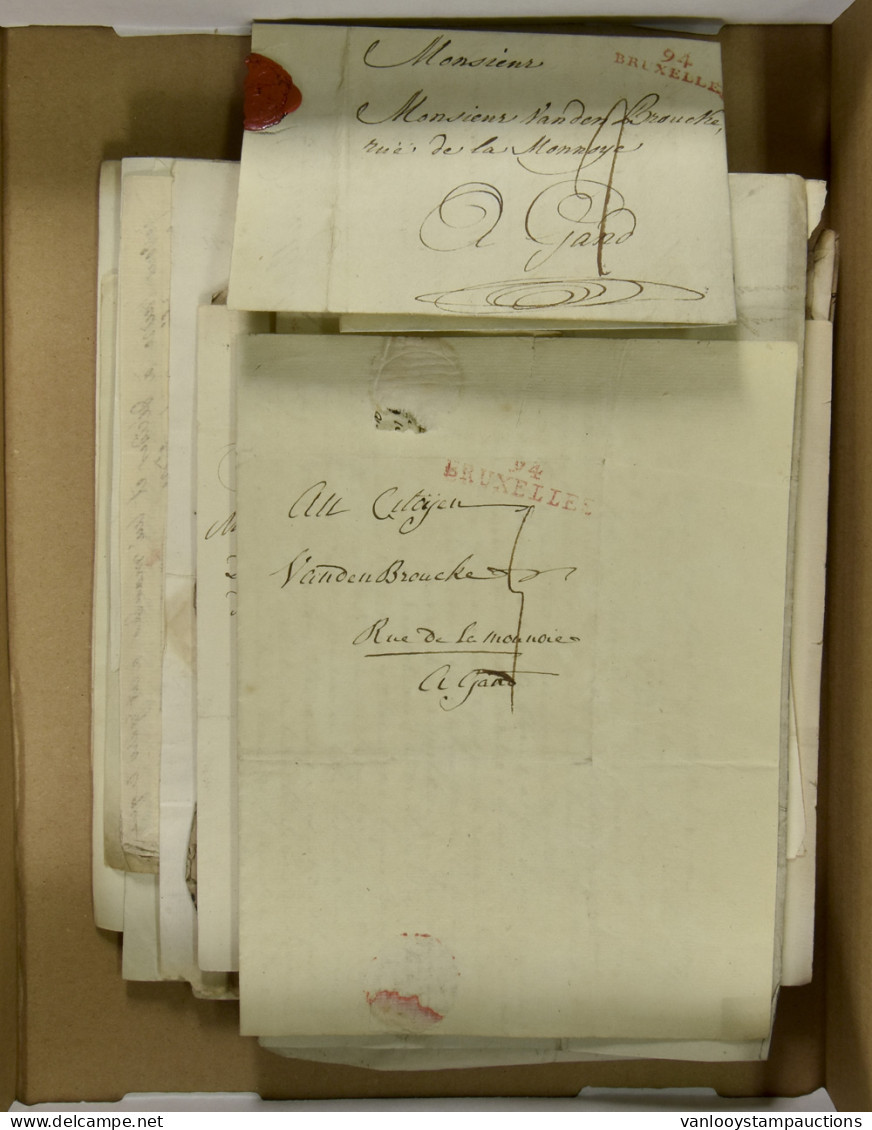 Monsieur
94
BRUXELLES
Monsieur Vanden Broucke,
rue de la Monnoye
A Gand
94
BRUXELLES
Au Citoÿen
VandenBroucke
Rue de la monnoie
A Gand
vanlooystampauctions